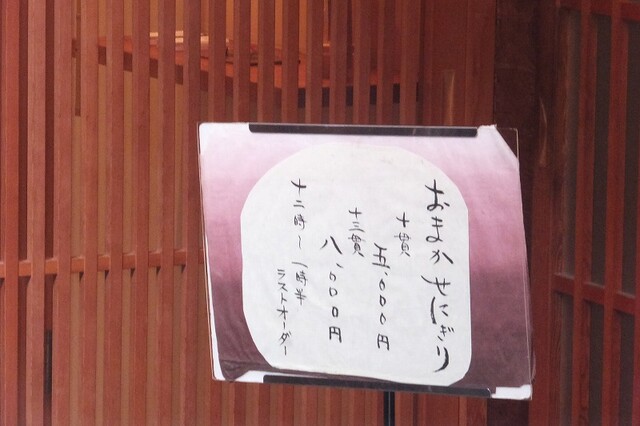 おまかせにぎり
十貫
五、000円
十三貫
八、000円
十二時~一時半
ラストオーダー